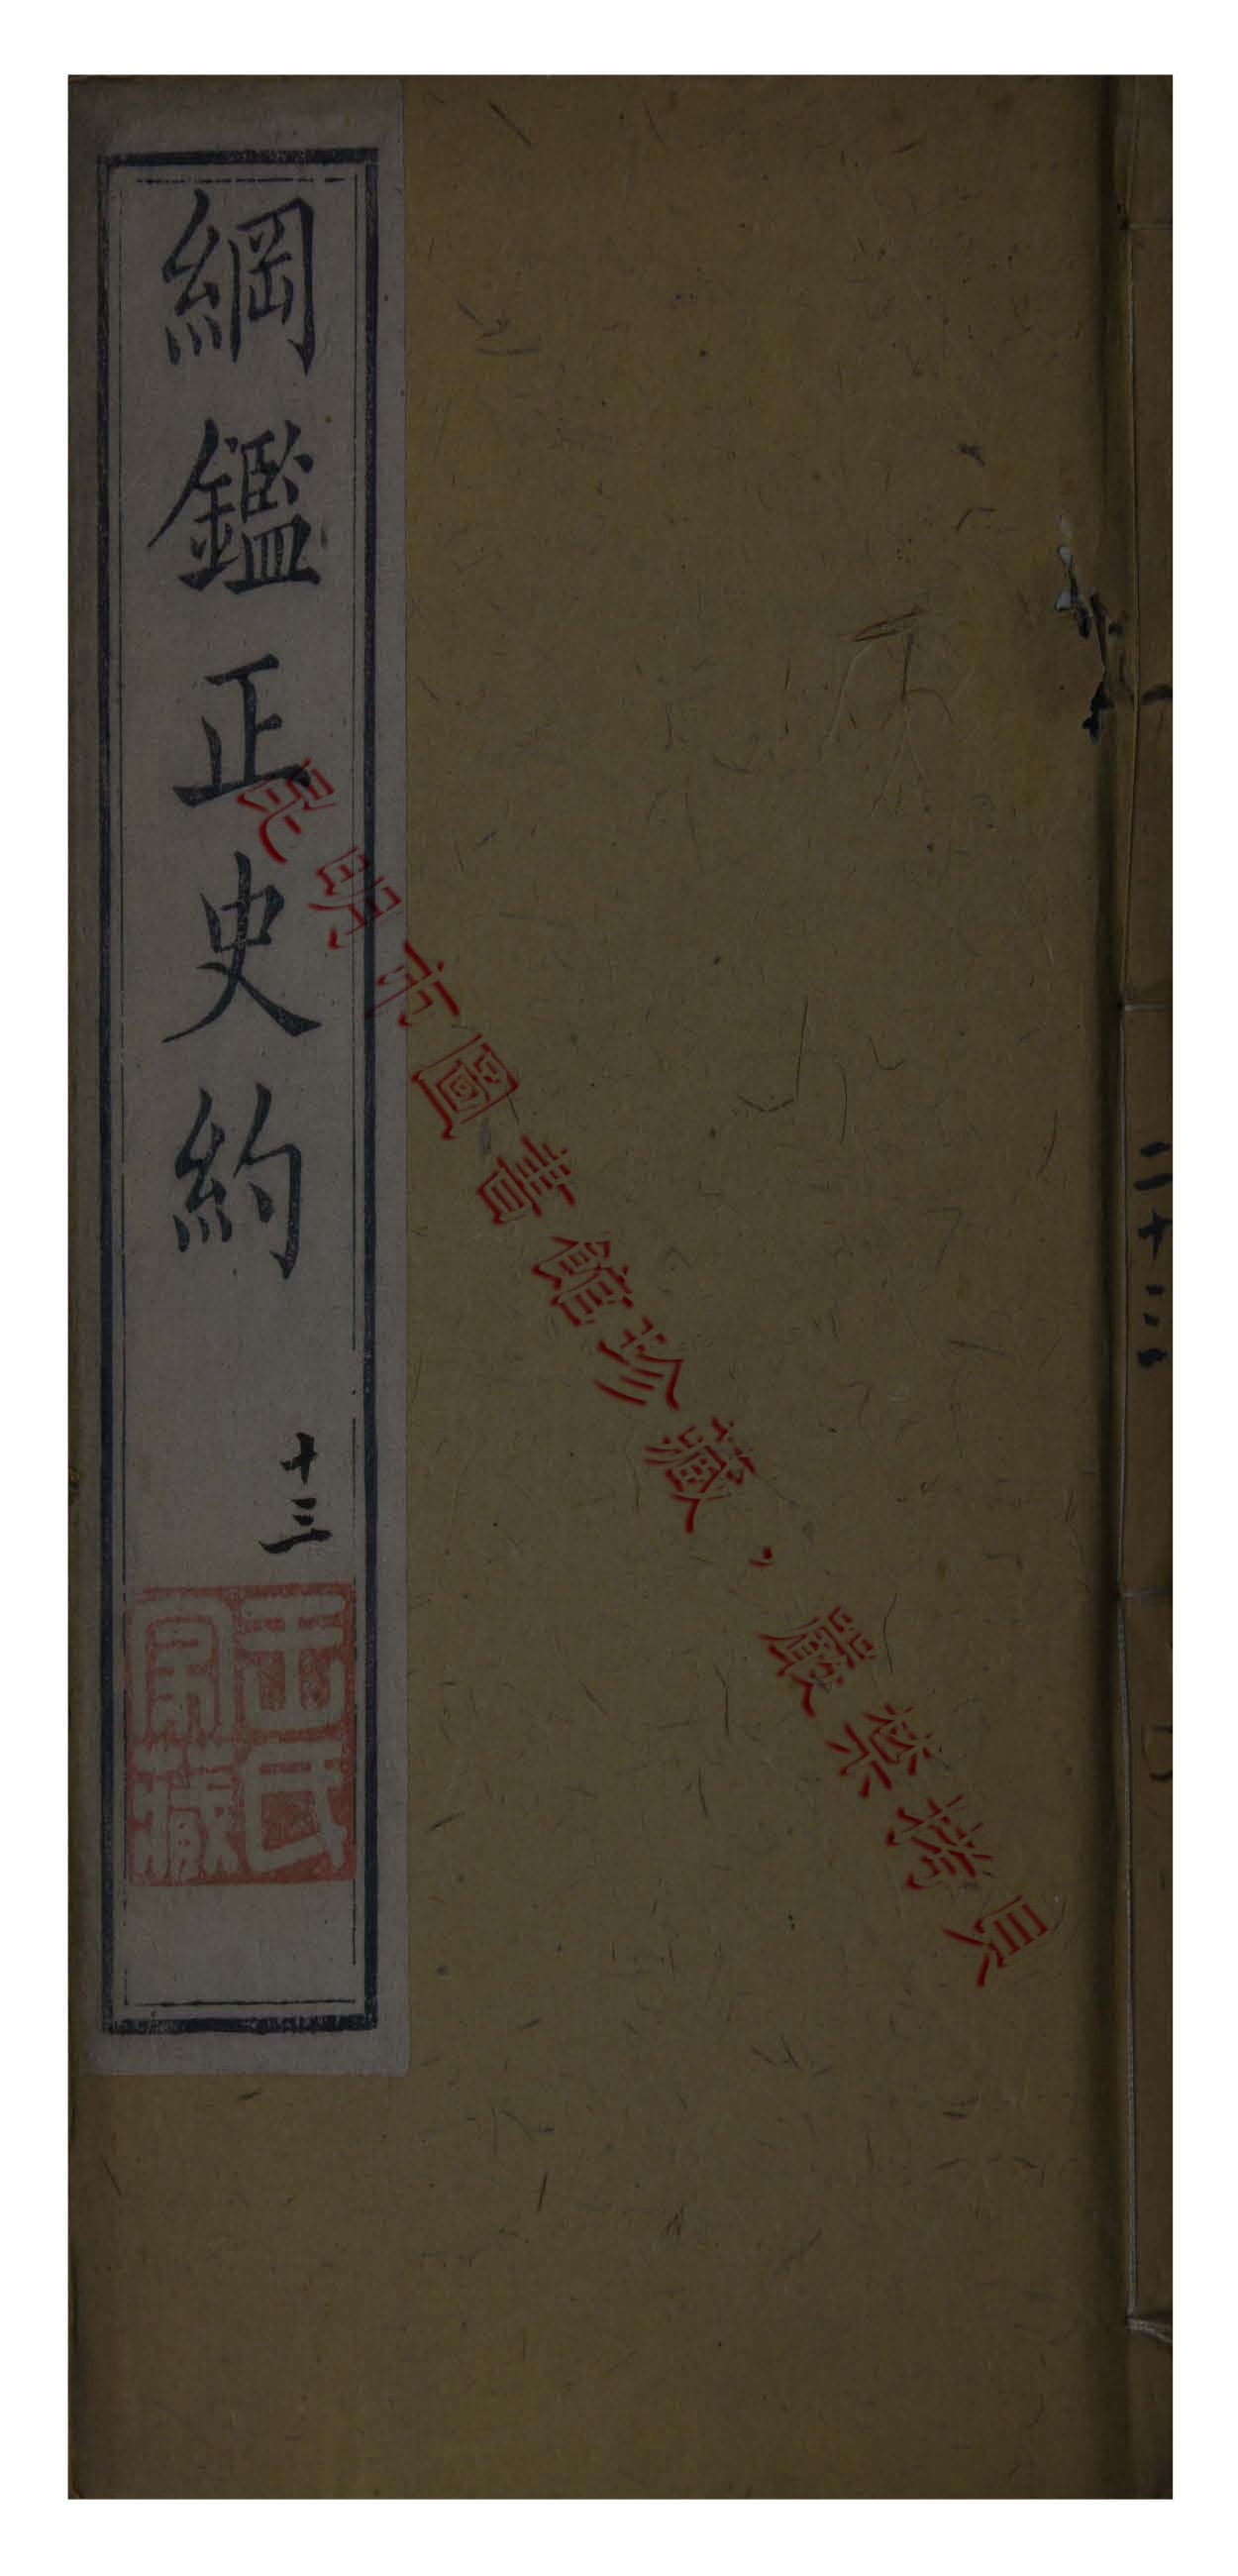 綱鑑正史約
十三
王氏
家藏
昆明市圖書館珍藏，嚴禁拷貝